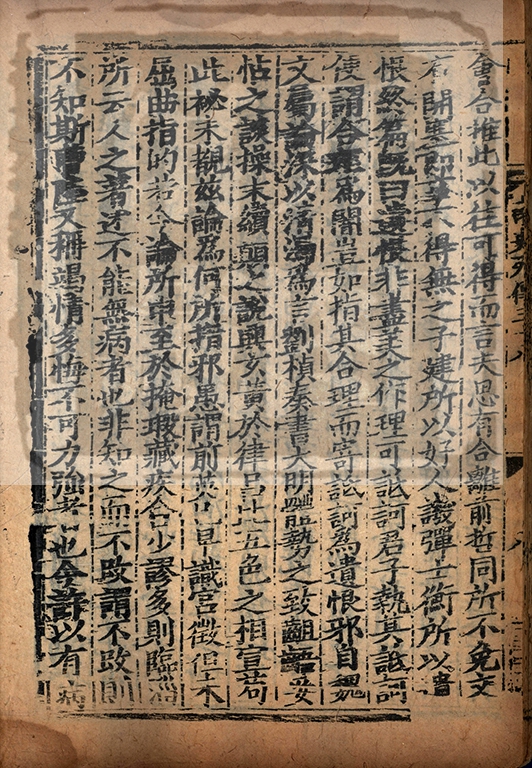 會合推此以往可得而言夫思有合離前哲同所不免文
有開塞即事不得無之子建所以好人譏彈士衡所以遺
恨終篇既曰遺恨非盡美之作理可詆訶君子執其詆訶
便謂合理為闇豈如指其合理而寄詆訶為遺恨邪自魏
文屬論深以清濁為言劉楨奏書大明體勢之致齟齬妥
怗之談操末續顛之說興玄黃於律呂比五色之相宣苟
此祕未覩茲論為何所指邪愚謂前英已早識宮徵但未
屈曲指的若今論所申至於掩瑕藏疾合少謬多則臨淄
所云人之著述不能無病者也非知之而不改謂不改則
不知斯曹陸又稱竭情多悔不可力強者也今許以有病